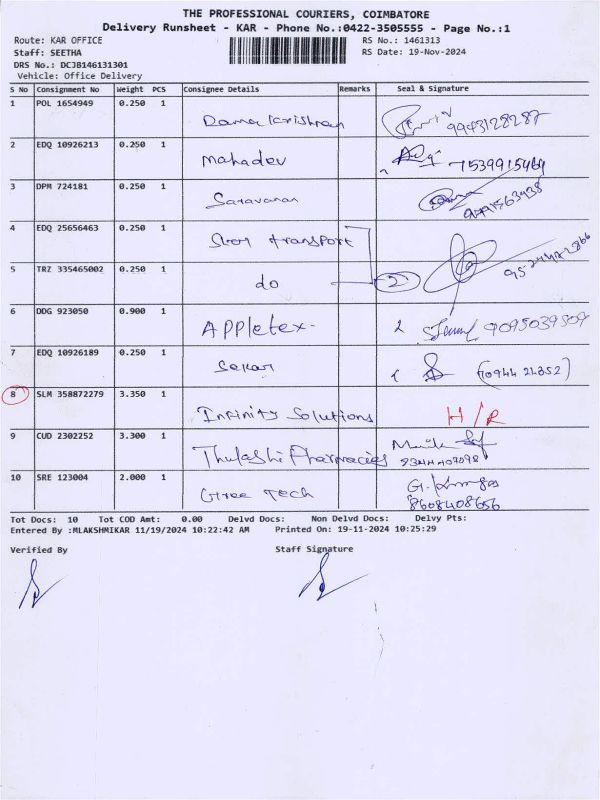 THE PROFESSIONAL COURIERS, COIMBATORE
Delivery Runsheet - KAR - Phone No.:0422-3505555 - Page No.:1
Route: KAR OFFICE RS No.: 1461313
Staff: SEETHA RS Date: 19-Nov-2024
DRS No.: DCJB146131301
Vehicle: Office Delivery
S No Consignment No Weight PCS Consignee Details Remarks Seal & Signature
1 POL 1654949 0.250 1 Ramakrishnan 9943128287
2 EDQ 10926213 0.250 1 Mahadev 7539915469
3 DPM 724181 0.250 1 Saravanan
4 EDQ 25656463 0.250 1 transport
5 TRZ 335465002 0.250 1 do 2
6 DDG 923050 0.900 1 Appletex- 9095039509
7 EDQ 10926189 0.250 1 Sekar (70944 21352)
8 SLM 358872279 3.350 1 Infinity Solutions H/R
9 CUD 2302252 3.300 1 Thulashi Pharmacies 9344407098
10 SRE 123004 2.000 1 Gtree Tech 8608408656
Tot Docs: 10 Tot COD Amt: 0.00 Delvd Docs: Non Delvd Docs: Delvy Pts:
Entered By :MLAKSHMIKAR 11/19/2024 10:22:42 AM Printed On: 19-11-2024 10:25:29
Verified By Staff Signature